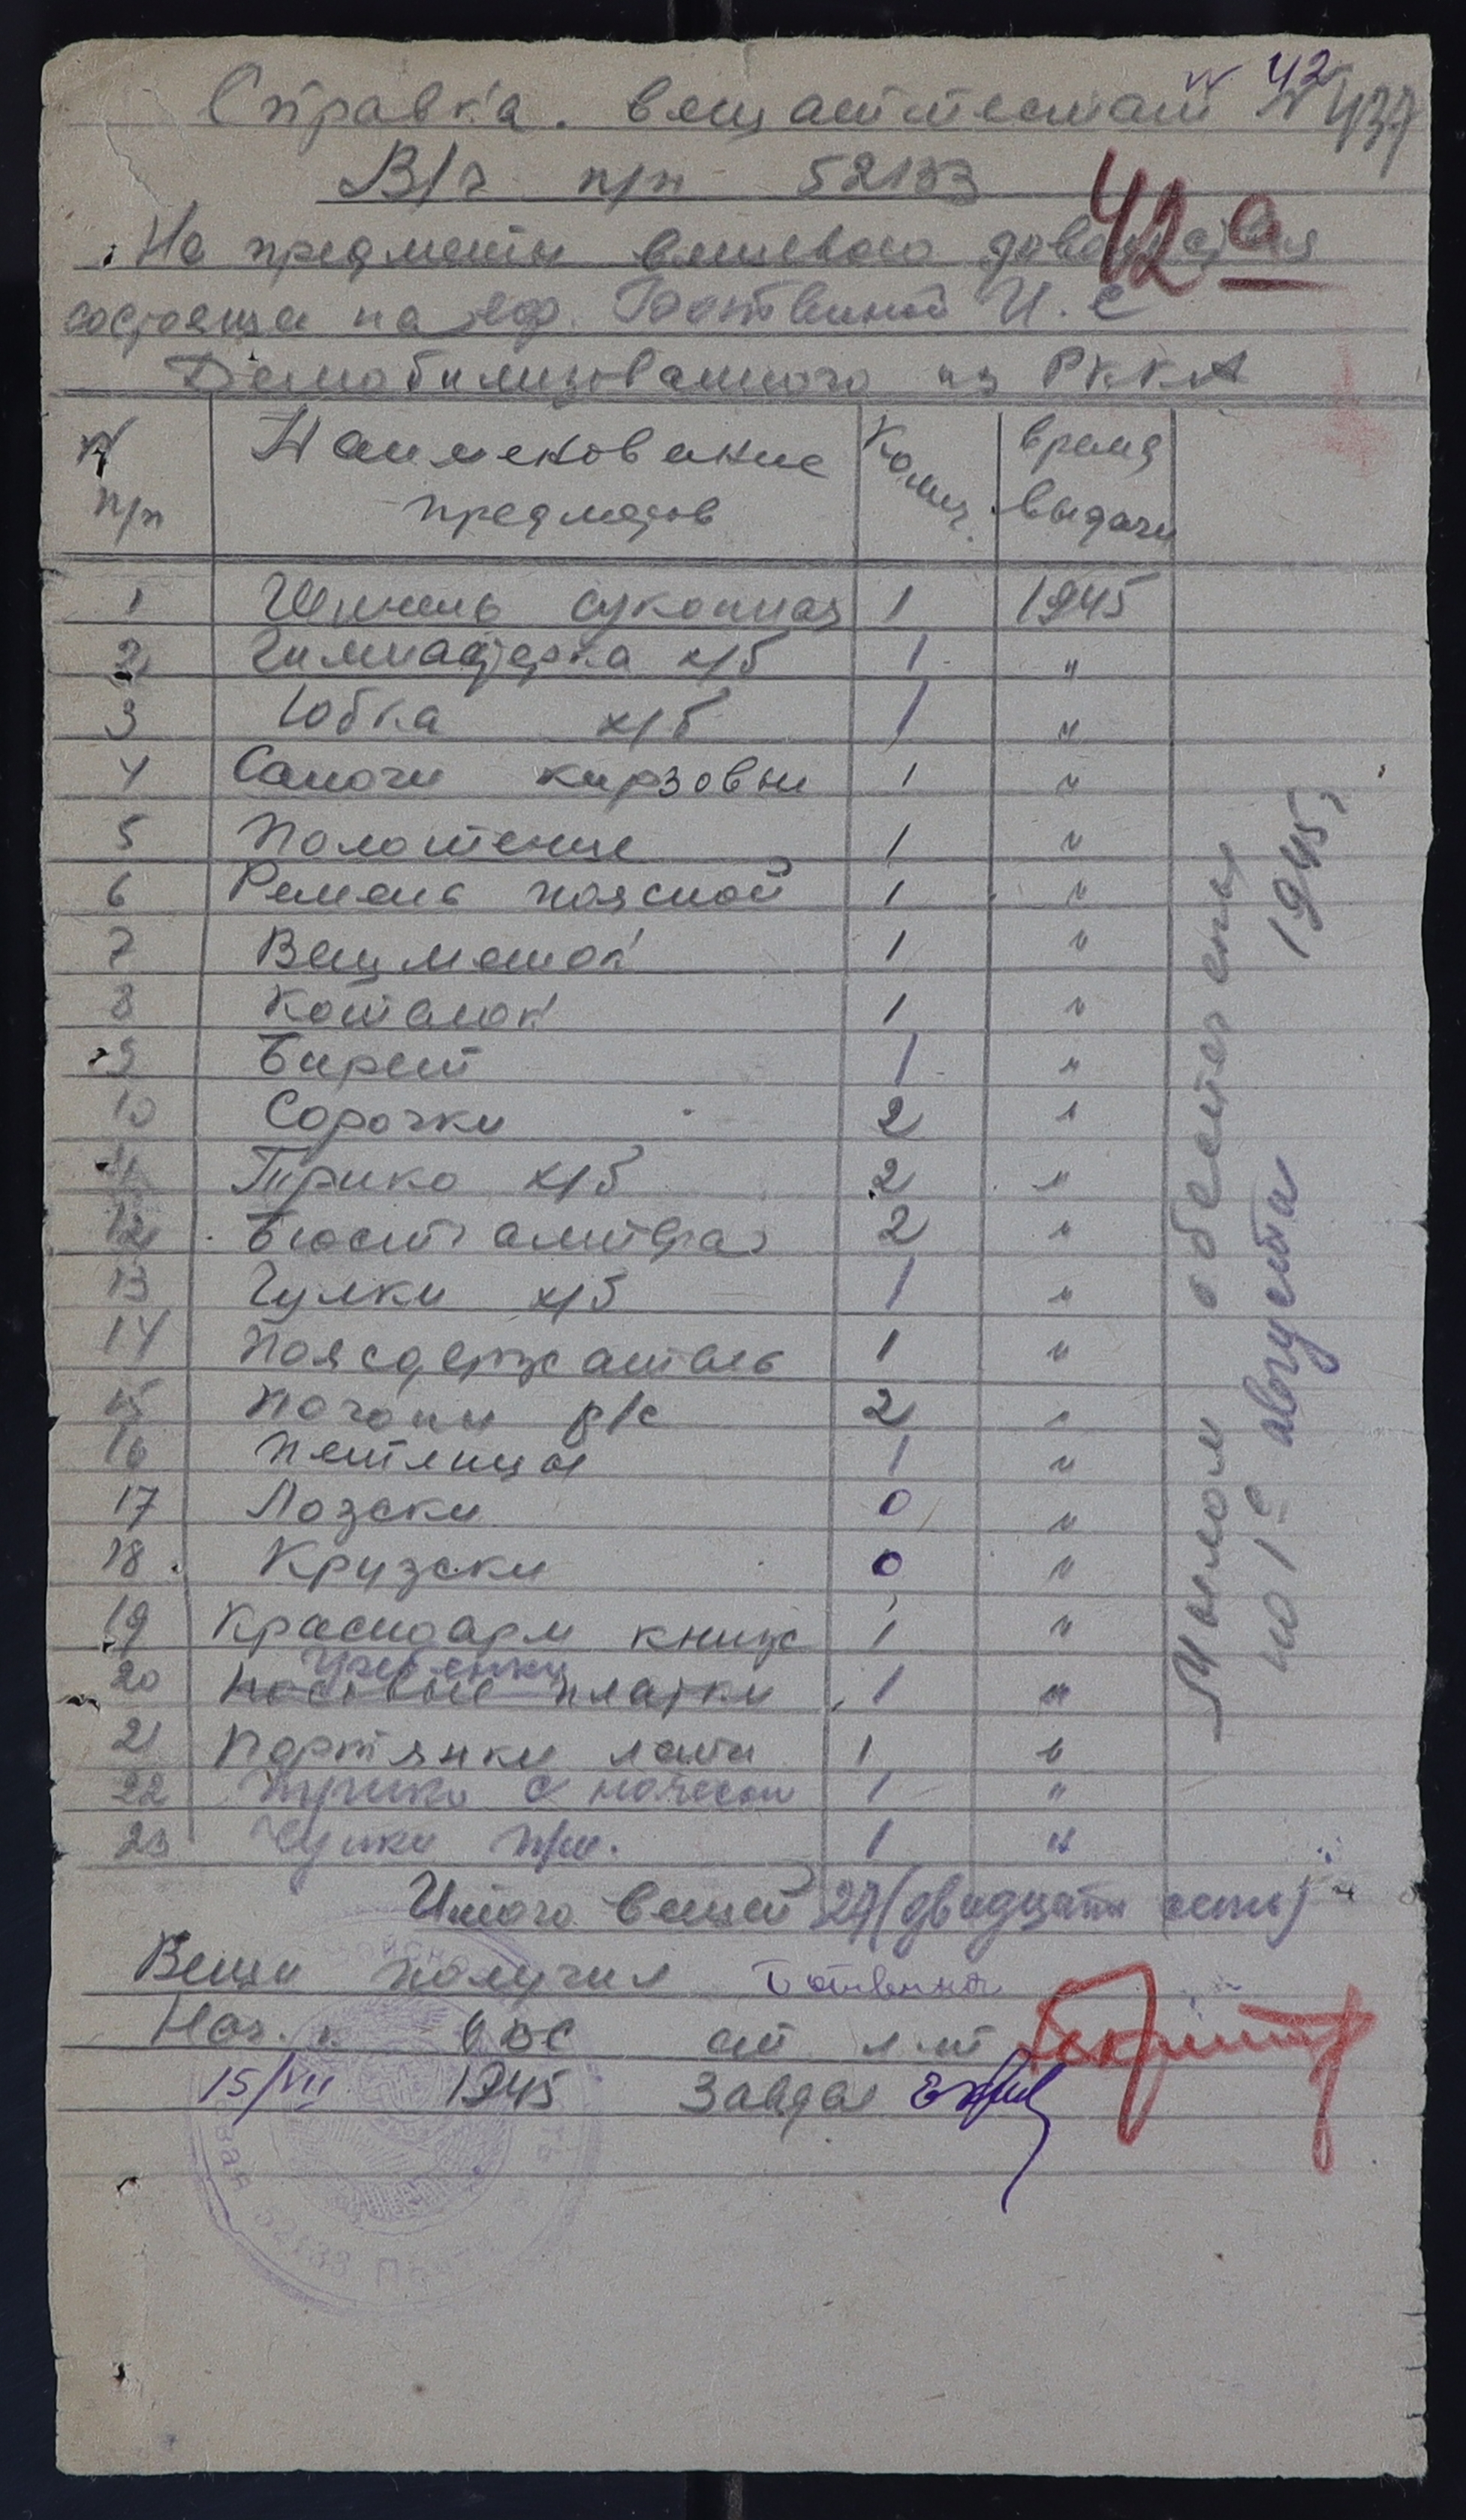 № 42
Справка. вещаттестат № 437
В/ч п/п 52133
42а
На предметы вещевого довольствия
состояща на еф. Ботвиной И. С
Демобилизованного из РККА
№ п/п Наименование предметов Колич. время выдачи
1 Шинель суконная 1 1945
2 Гимнастерка х/б 1 "
3 Юбка х/б 1 "
4 Сапоги кирзовы 1 "
5 Полотенце 1 "
6 Ремень поясной 1 "
7 Вещмешок 1 "
8 Котелок 1 "
9 Бирет 1 "
10 Сорочки 2 "
11 Трико х/б 2 "
12 Бюстгалтера 2 "
13 Чулки х/б 1 "
14 Поясдержатель 1 "
15 Погоны р/с 2 "
16 Петлицы 1 "
17 Лозски 0 "
18 Крузски 0 "
19 Красноарм книж 1 "
20 Носовые платки 1 "
21 Портянки летн 1 "
22 Трико с начесом 1 "
23 Чулки п/ш. 1 "
Мылом обеспечены
по 1е августа 1945 г
Итого вещей 27 (двадцать семь)
Вещи получил Ботвина
Нач. ОВС ст л-т
15/VII 1945 Завдел
52133